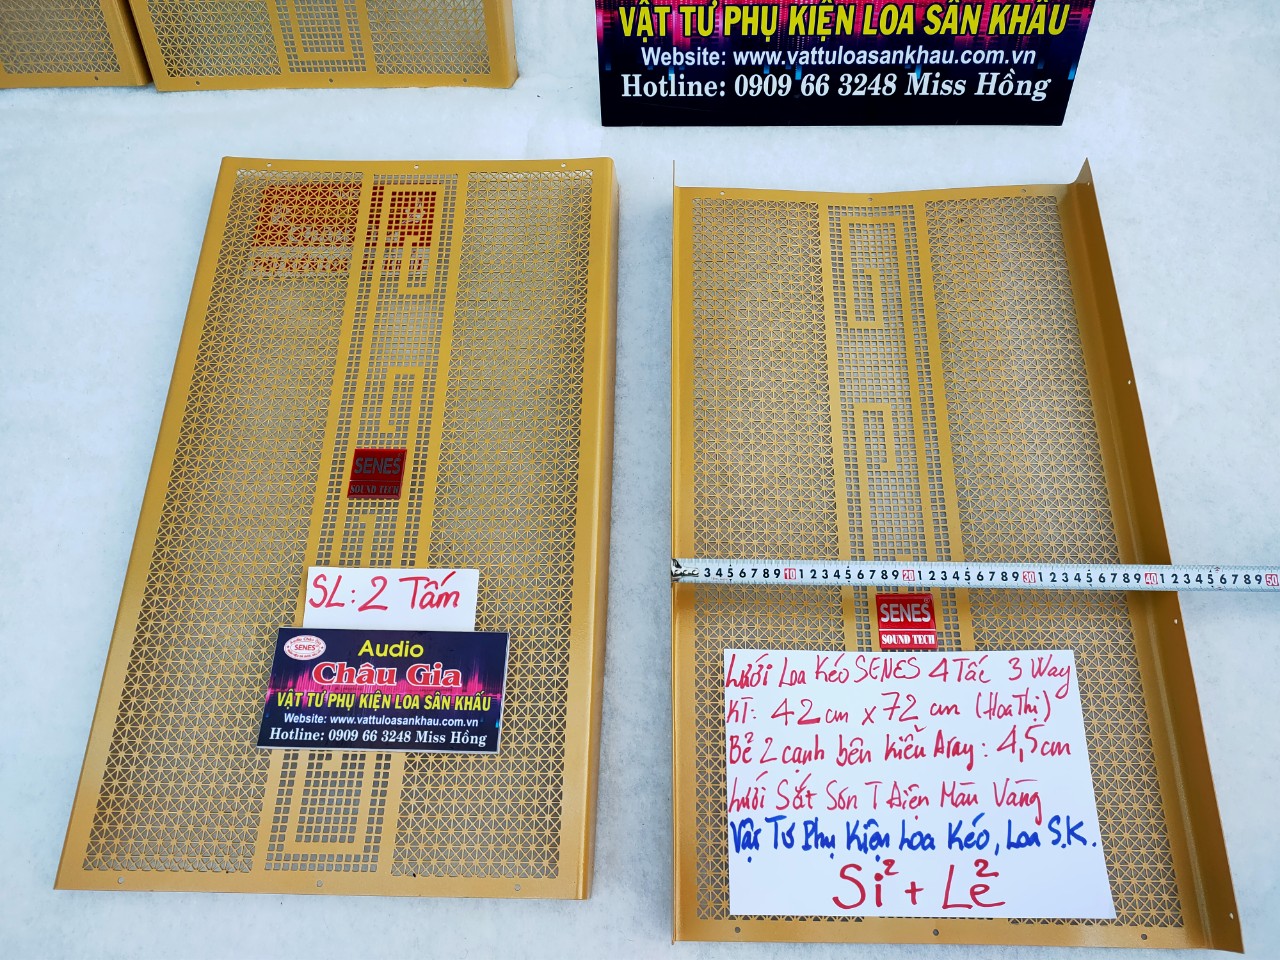 VẬT TƯ PHỤ KIỆN LOA SÂN KHẤU
Website: www.vattuloasankhau.com.vn
Hotline: 0909 66 3248 Miss Hồng
SENES
SOUND TECH
SL: 2 Tấm
Audio Châu Gia
SENES
Audio
Châu Gia
VẬT TƯ PHỤ KIỆN LOA SÂN KHẤU
Website: www.vattuloasankhau.com.vn
Hotline: 0909 66 3248 Miss Hồng
3 4 5 6 7 8 9 10 1 2 3 4 5 6 7 8 9 20 1 2 3 4 5 6 7 8 9 30 1 2 3 4 5 6 7 8 9 40 1 2 3 4 5 6 7 8 9 50
SENES
SOUND TECH
Lưới Loa Kéo SENES 4 Tấc 3 Way
KT: 42 cm x 72 cm (Hoa Thị)
Bẻ 2 cạnh bên kiểu Aray: 4,5 cm
Lưới Sắt Sơn T Điện Màu Vàng
Vật Tư Phụ Kiện Loa Kéo, Loa S.K.
Sỉ + Lẻ